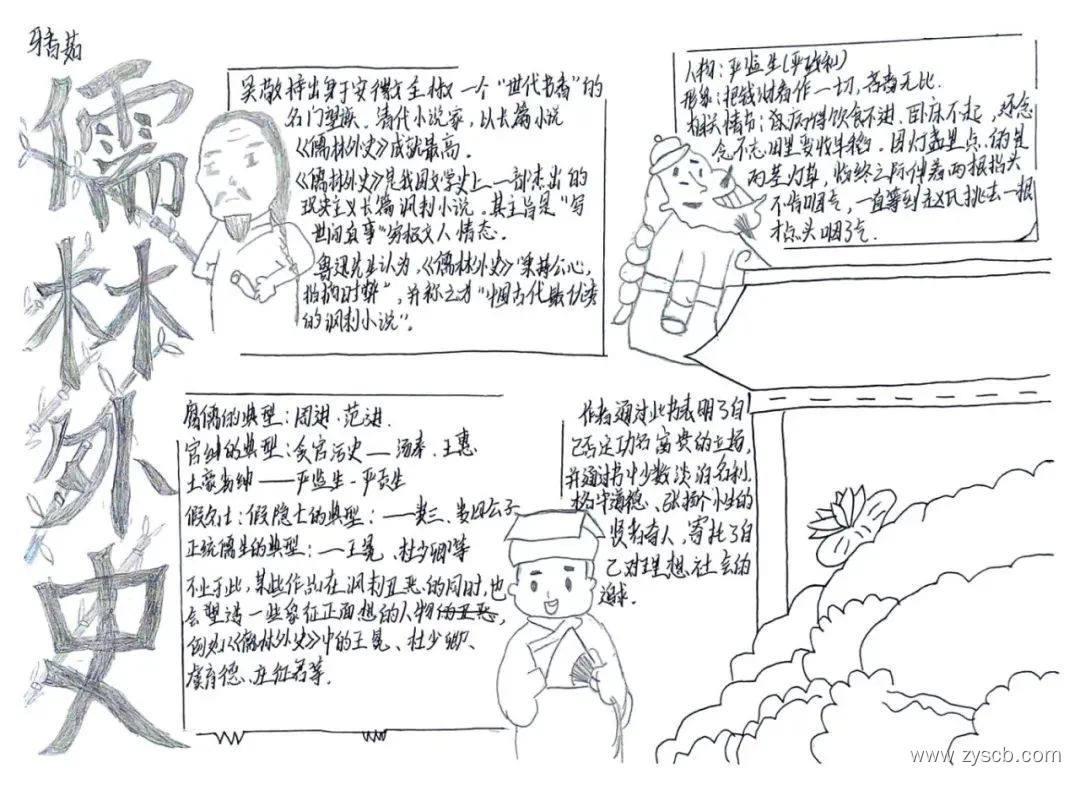 儒林外史
吴敬梓出身于安徽全椒一个“世代书香”的
名门望族、清代小说家，以长篇小说
《儒林外史》成就最高。
《儒林外史》是我国文学史上一部杰出的
现实主义长篇讽刺小说。其主旨是“写
世间真事”穷极文人情态。
鲁迅先生认为，《儒林外史》“秉持公心，
指擿时弊”，并称之为“中国古代最优秀
的讽刺小说”。
人物：严监生(严致和)
形象：把钱财看作一切，吝啬无比。
相关情节：饮食不进、卧床不起，还念
念不忘田里要收早稻。因灯盏里点的是
两茎灯草，临终之际伸着两根指头
不肯咽气，一直等到赵氏挑去一根
才点头咽了气.
腐儒的典型：周进、范进.
官绅的典型：贪官污吏——汤奉、王惠
土豪劣绅——严监生-严贡生
假名士：假隐士的典型：——娄三、娄四公子
正统儒生的典型：——王冕、杜少卿等
不止于此，某些作品在讽刺丑恶的同时，也
会塑造一些象征正面想的人物
例如《儒林外史》中的王冕、杜少卿、
虞育德、庄征君等.
作者通过此书表明了自
己否定功名富贵的立场，
并通过书中少数淡泊名利、
恪守道德、张扬个性的
贤者奇人，寄托了自
己对理想社会的
追求.
www.zyscb.com